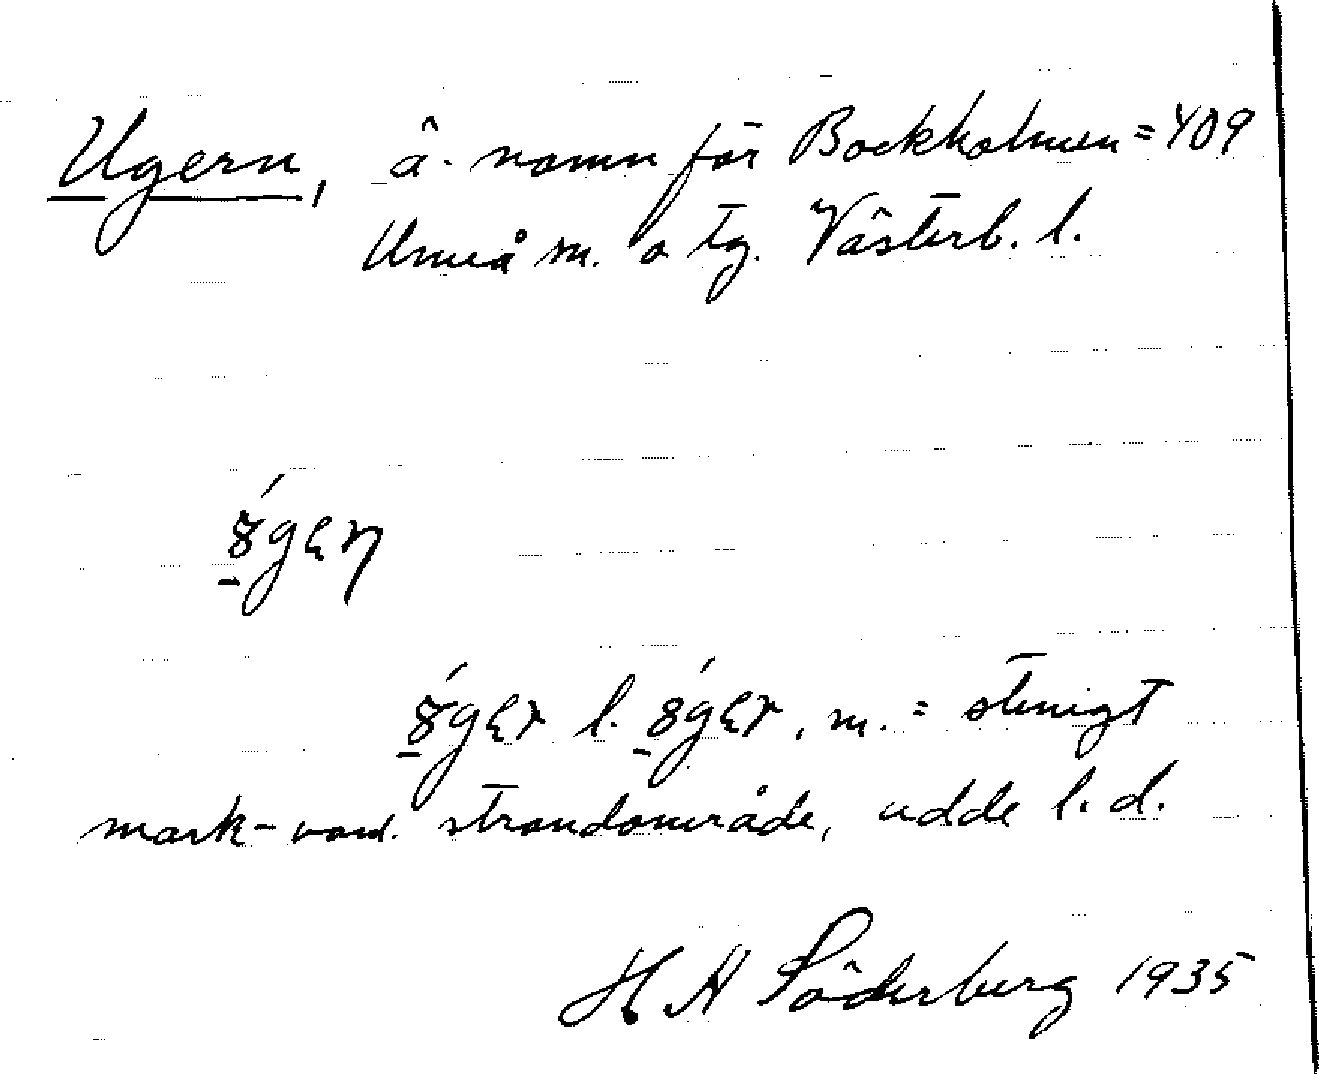 Ugern, ä.-namn för Bockholmen = 409
Umeå m. o tg. Västerb. l.
8́gɛn
8́gɛr l. 8́gɛr, m. = stenigt
mark- vanl. strandområde, udde l. d.
H N Söderberg 1935